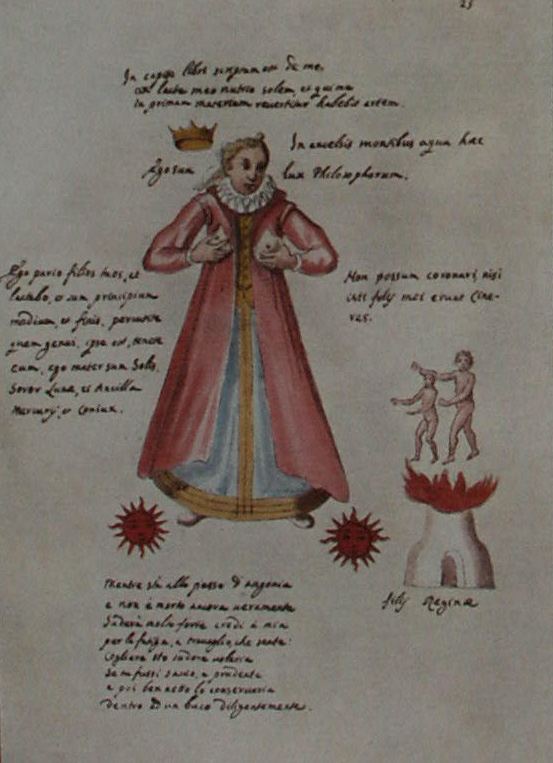 25
In capite libri scriptum est de me,
lacte meo nutrio solem, et qui me
in primam materiam revertitur habebis artem.
In excelsis montibus aqua hæc
Ego sum lux Philosophorum.
Ego pario filios meos, et
lactabo, et sum principium
medium, et finis,
quem genui, ipse est,
cum, ego mater sum Solis,
Soror Lunæ, et Ancilla
Mercurij et Coniux.
Non possum coronari, nisi
isti filij mei erunt Cine-
res.
filij Reginæ
Mentre stà allo passo d'angonia
e non è morto ancora veramente
Suderà molto forte credi à mia
per la fatiga, e travaglio che sente:
Cogliere sto sudore
se tu fussi savio, e prudente
e poi ben netto lo conserveria
dentro d'un buco diligentemente.